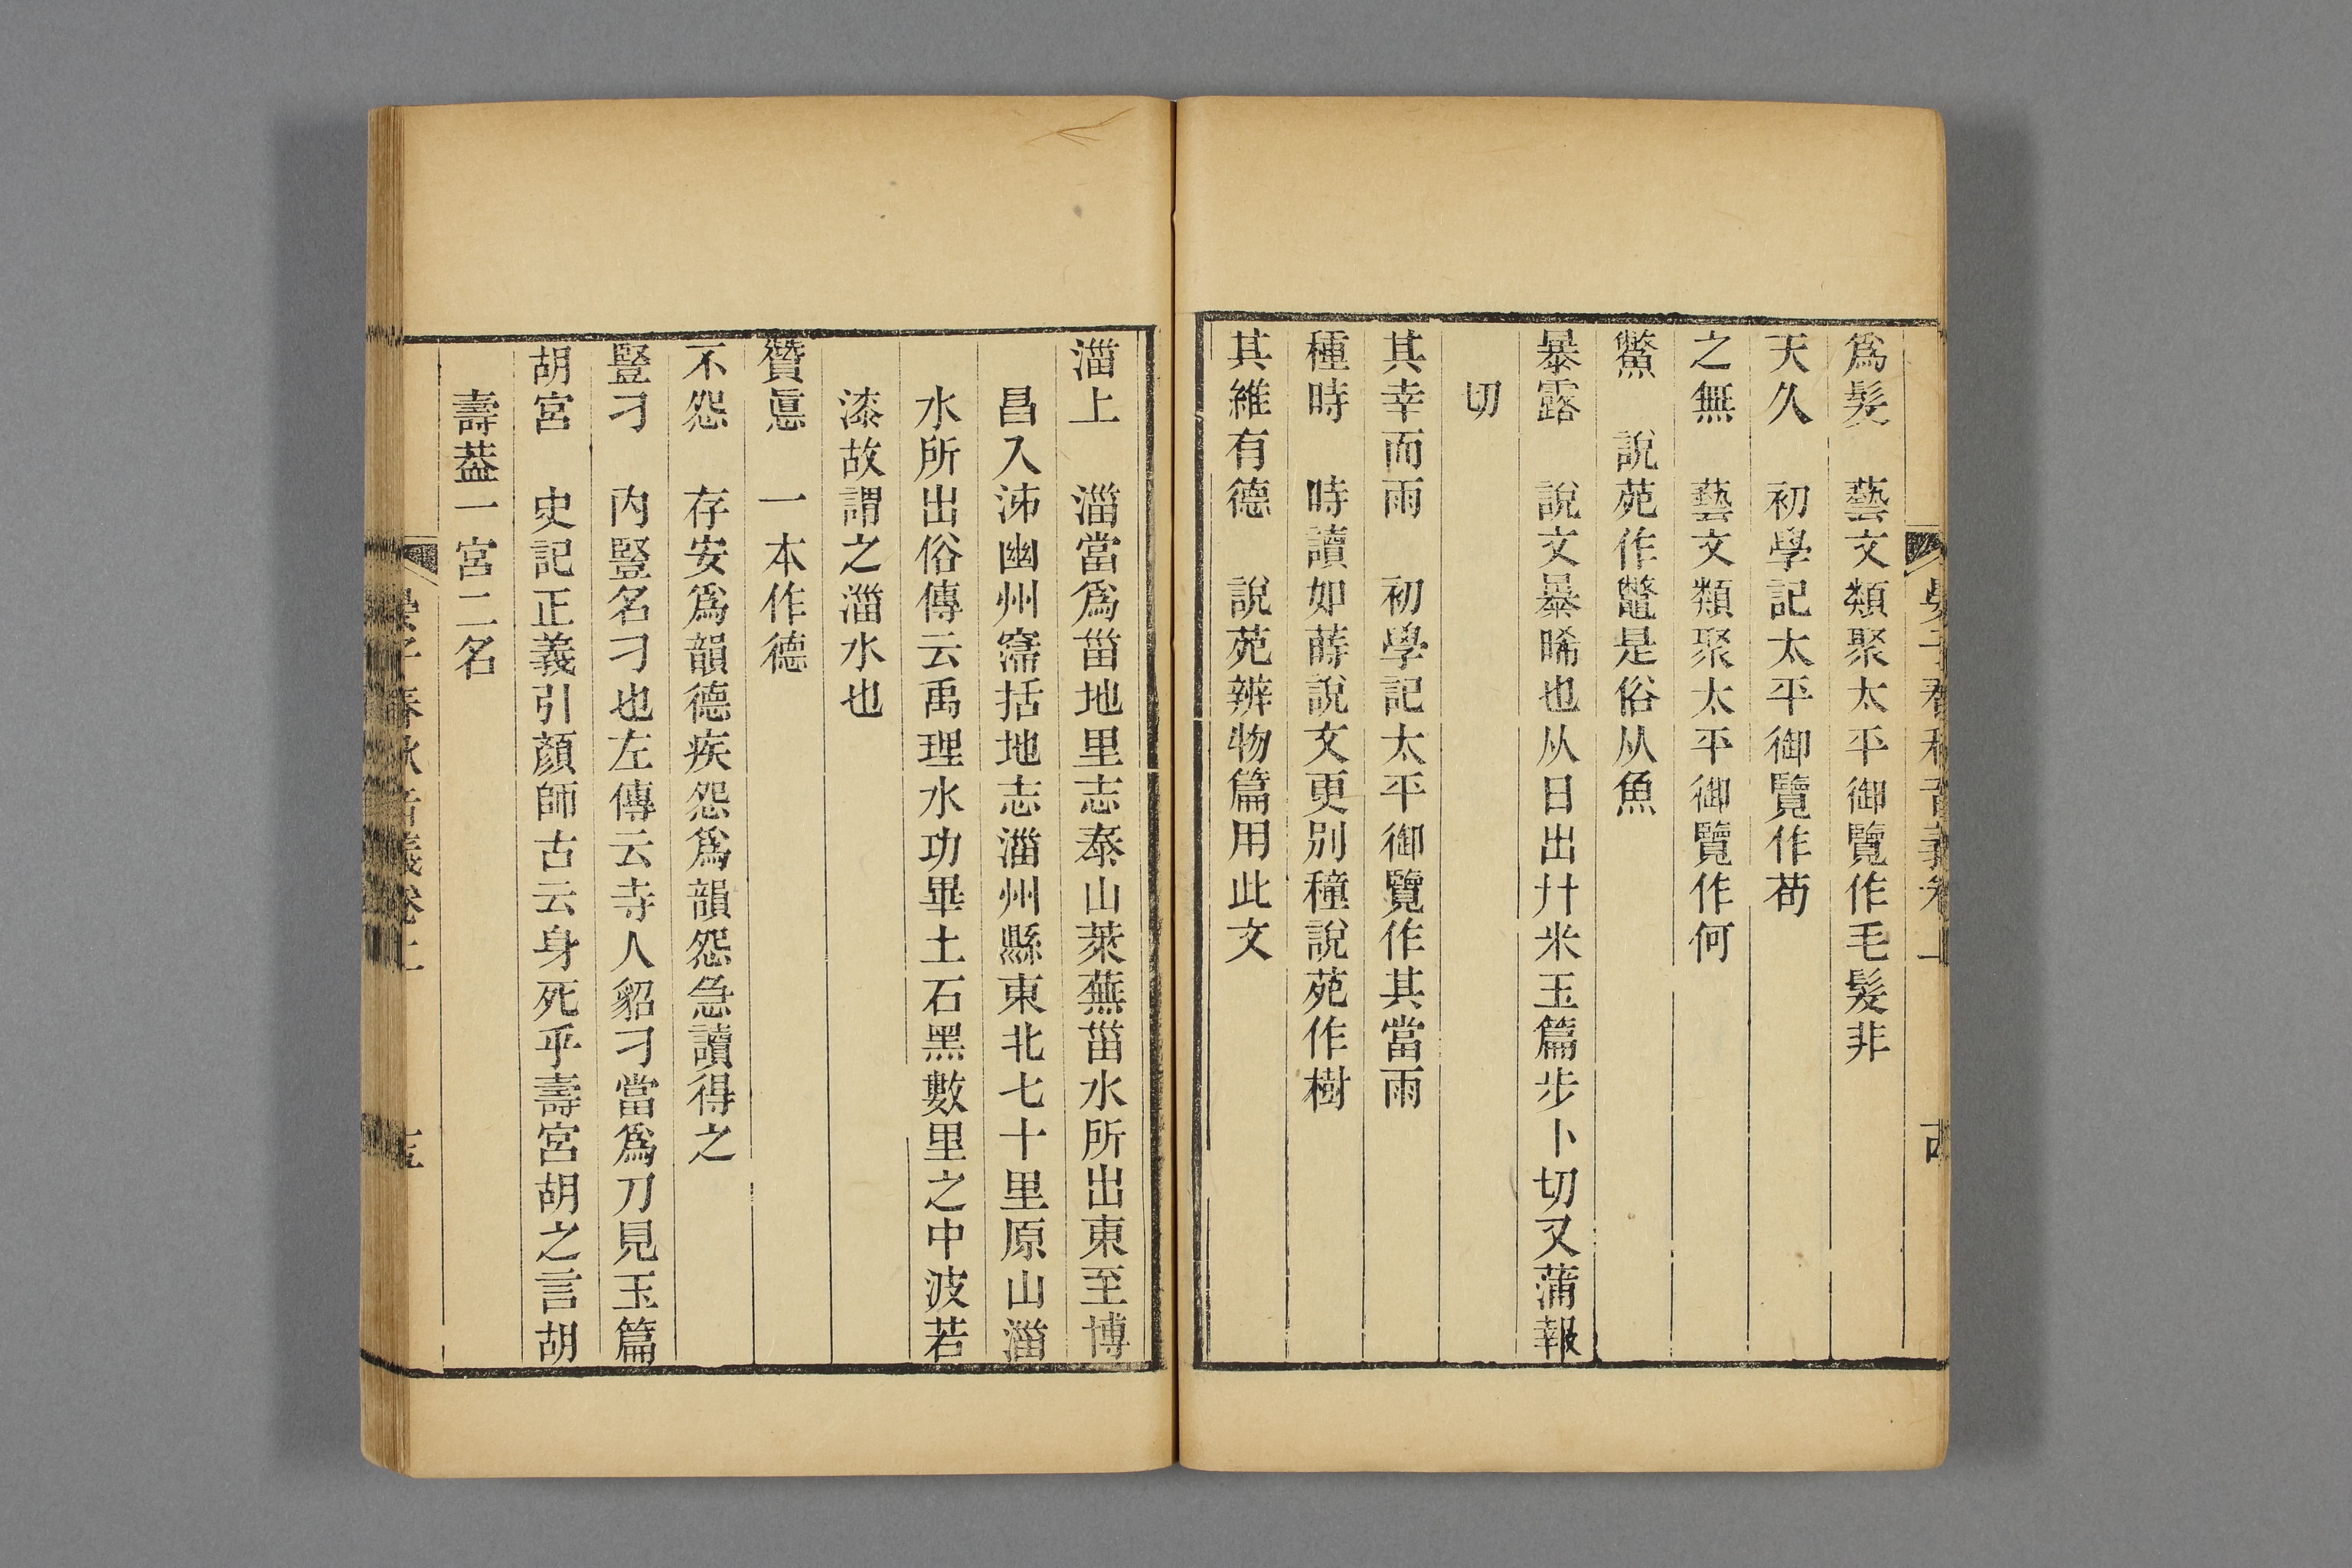 爲髮　藝文類聚太平御覽作毛髮非
天久　初學記太平御覽作苟
之無　藝文類聚太平御覽作何
鱉　說苑作鼈是俗从魚
暴露　說文暴晞也从日出廾米玉篇步卜切又蒲報
切
其幸而雨　初學記太平御覽作其當雨
種時　時讀如蒔說文更別穜說苑作樹
其維有德　說苑辨物篇用此文
淄上　淄當爲甾地里志泰山萊蕪甾水所出東至博
昌入泲幽州寖括地志淄州縣東北七十里原山淄
水所出俗傳云禹理水功畢土石黑數里之中波若
漆故謂之淄水也
贊悳　一本作德
不怨　存安爲韻德疾怨爲韻怨急讀得之
豎刁　內豎名刁也左傳云寺人貂刁當爲刀見玉篇
胡宮　史記正義引顏師古云身死乎壽宮胡之言胡
壽葢一宮二名
晏子春秋音義卷上